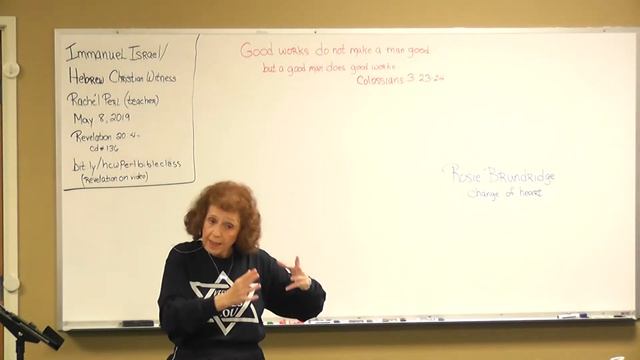 Immanuel Israel/
Hebrew Christian Witness
Rachél Perl (teacher)
May 8, 2019
Revelation 20
cd #136
bit.ly/hcwperlbibleclass
(Revelation on video)
Good works do not make a man good
but a good man does good works
Colossians 3:23-24
Rosie Brundridge
change of heart
YOU